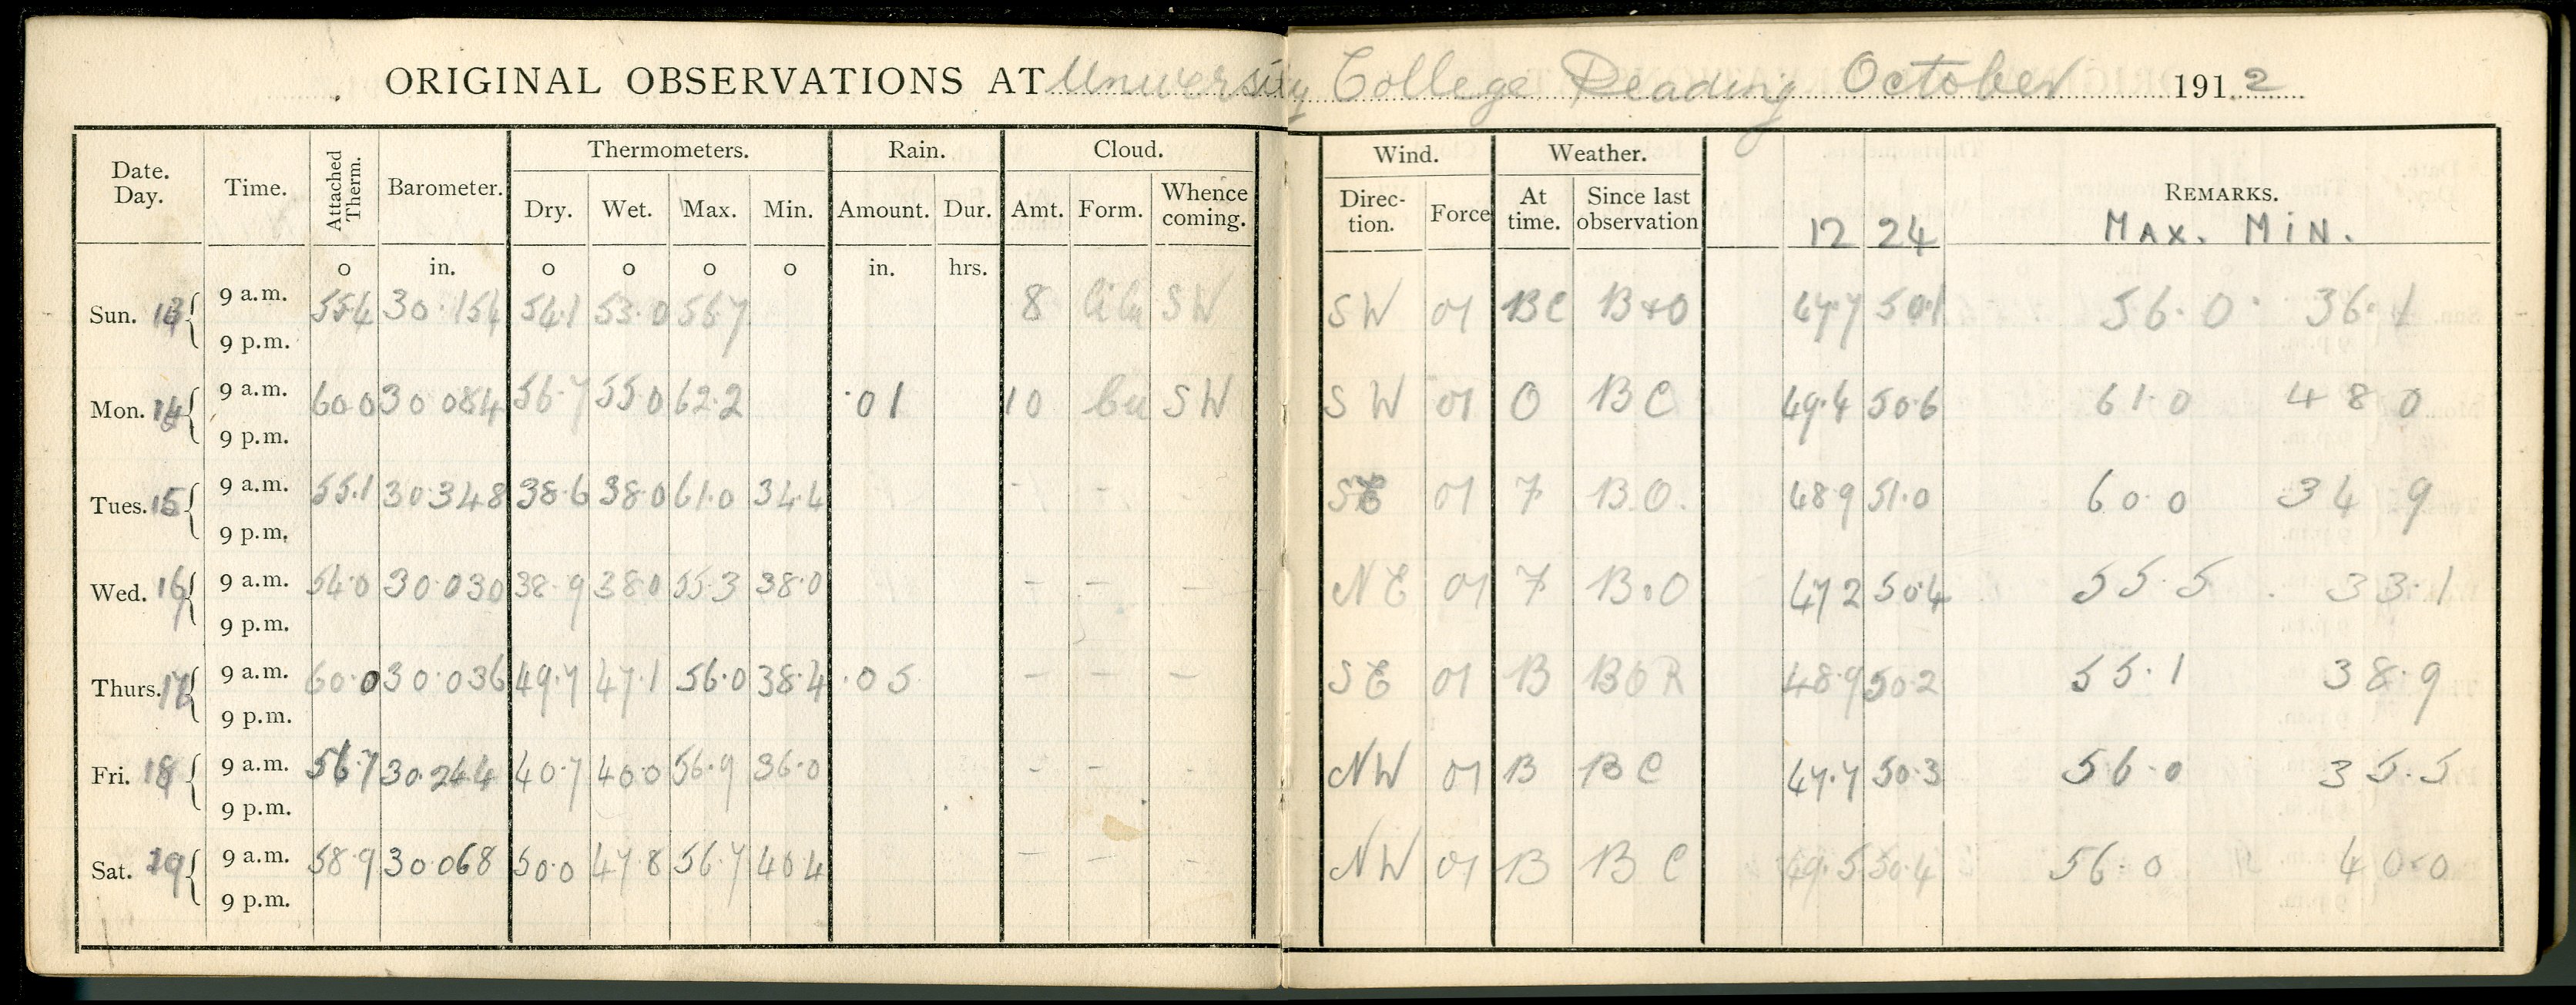 ORIGINAL OBSERVATIONS AT University College Reading October 1912
Date. Day. Time. Attached Therm. Barometer. Thermometers. Dry. Wet. Max. Min. Rain. Amount. Dur. Cloud. Amt. Form. Whence coming. Wind. Direc- tion. Force Weather. At time. Since last observation 12 24 REMARKS. MAX. MIN.
o in. o o o o in. hrs.
Sun. 13 9 a.m. 55.4 30.154 54.1 53.0 56.7 8 SW SW 01 BC B+O 47.7 50.1 56.0 36.1
9 p.m.
Mon. 14 9 a.m. 60.0 30 084 56.7 55.0 62.2 .01 10 SW SW 01 O BC 49.4 50.6 61.0 48 0
9 p.m.
Tues. 15 9 a.m. 55.1 30.348 38.6 38.0 61.0 34.4 - - - SE 01 7 B.O. 48.9 51.0 60.0 34 9
9 p.m.
Wed. 16 9 a.m. 54.0 30.030 38.9 38.0 55.3 38.0 - - - NE 01 7 B.O 47 2 50.4 55.5 33.1
9 p.m.
Thurs. 17 9 a.m. 60.0 30.036 49.7 47.1 56.0 38.4 .05 - - - SE 01 B BOR 48.9 50.2 55.1 38.9
9 p.m.
Fri. 18 9 a.m. 56.7 30.244 40.7 40.0 56.9 36.0 - - - NW 01 B BC 47.7 50.3 56.0 35.5
9 p.m.
Sat. 19 9 a.m. 58.9 30.068 50.0 47.8 56.7 40.4 - - - NW 01 B BC 49.5 50.4 56.0 40.0
9 p.m.